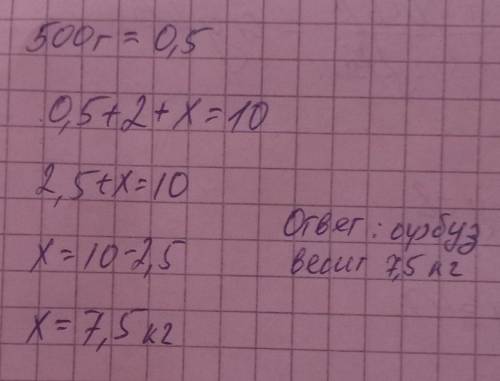 500г = 0,5
0,5+2+x=10
2,5+x=10
x=10-2,5
x=7,5кг
Ответ: арбуз
весит 7,5 кг